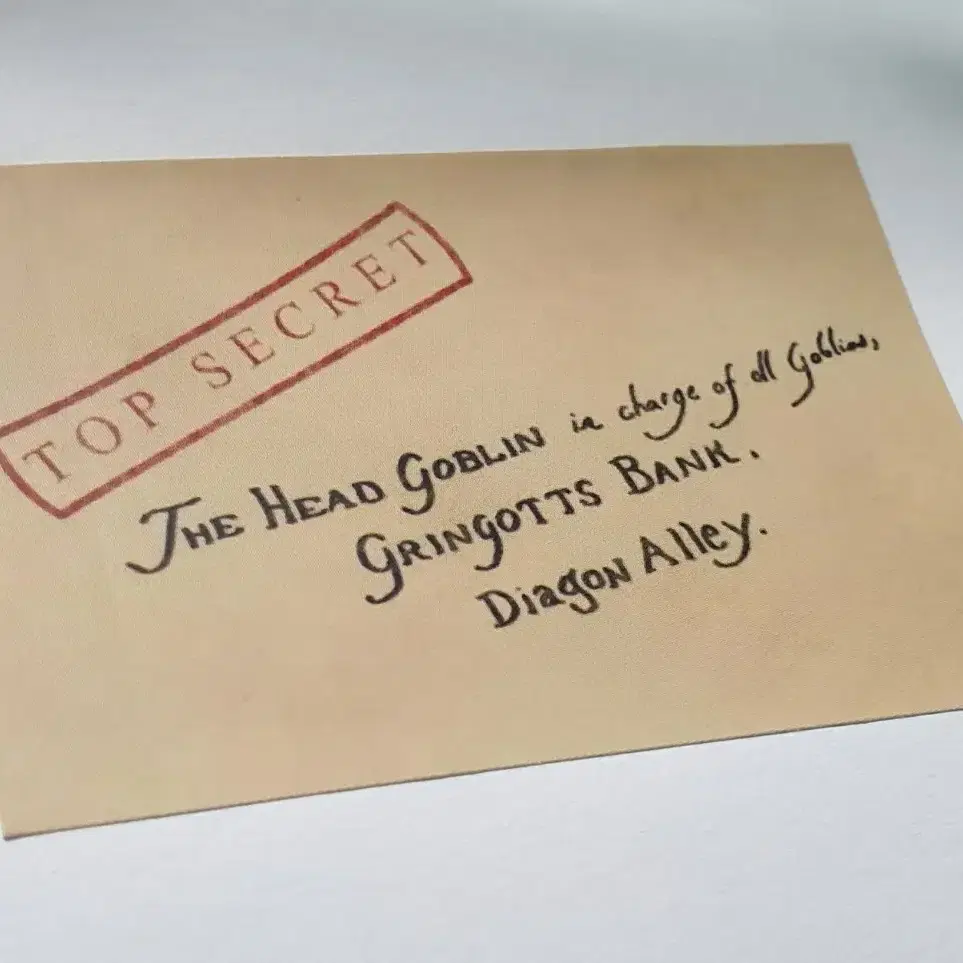 TOP SECRET
THE HEAD GOBLIN in charge of all Goblins,
GRINGOTTS BANK.
Diagon Alley.